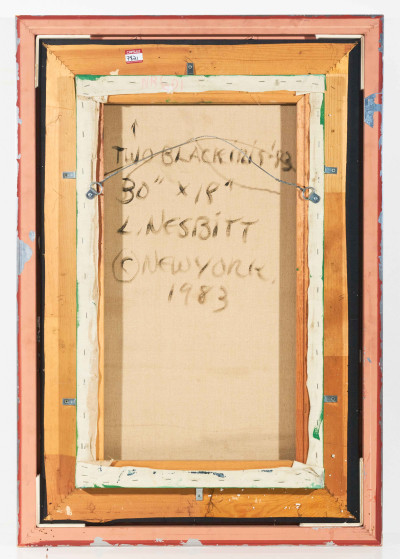 TWO BLACK IRIS '83
30" X 18"
L. NESBITT
© NEW YORK.
1983